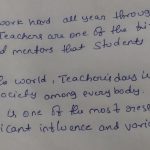 work hard all year through
Teachers are one of the
nd mentors that students
world, Teacher's day is
ociety among everybody.
is one of the most prese
icant influence and vario